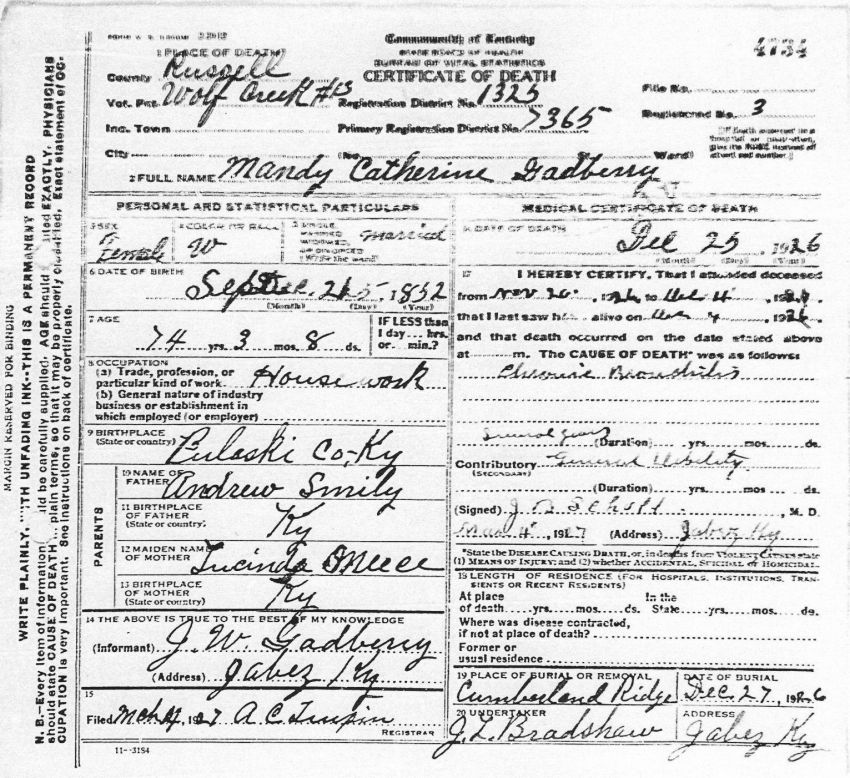 Commonwealth of Kentucky
STATE BOARD OF HEALTH
BUREAU OF VITAL STATISTICS
CERTIFICATE OF DEATH
4734
1 PLACE OF DEATH
County Russell
Vot. Pct. Wolf Creek #13
Registration District No. 1325
File No.
Inc. Town
Primary Registration District No. 7365
Registered No. 3
City
(No.
Ward)
2 FULL NAME Mandy Catherine Gadberry
PERSONAL AND STATISTICAL PARTICULARS
3 SEX Female
4 COLOR OR RACE W
5 SINGLE, MARRIED, WIDOWED, OR DIVORCED (Write the word) married
6 DATE OF BIRTH
Sept 1852
(Month) (Day) (Year)
7 AGE
74 yrs. 3 mos. 8 ds.
IF LESS than
1 day... hrs.
or... min.?
8 OCCUPATION
(a) Trade, profession, or
particular kind of work House work
(b) General nature of industry
business or establishment in
which employed (or employer)
9 BIRTHPLACE
(State or country) Pulaski Co, Ky
PARENTS
10 NAME OF
FATHER Andrew Smily
11 BIRTHPLACE
OF FATHER
(State or country) Ky
12 MAIDEN NAME
OF MOTHER Lucinda
13 BIRTHPLACE
OF MOTHER
(State or country) Ky
14 THE ABOVE IS TRUE TO THE BEST OF MY KNOWLEDGE
(Informant) J. W. Gadberry
(Address) Jabez Ky
15
Filed Mch 1927 A C
REGISTRAR
11--3184
MEDICAL CERTIFICATE OF DEATH
16 DATE OF DEATH
Dec 25, 1926
(Month) (Day) (Year)
17 I HEREBY CERTIFY, That I attended deceased
from Nov 20, 1926 to Dec 4, 192
that I last saw h alive on Dec 4, 1926
and that death occurred on the date stated above
at m. The CAUSE OF DEATH* was as follows:
Chronic Bronchitis
Several years (Duration) yrs. mos. ds.
Contributory General Debility
(SECONDARY)
(Duration) yrs. mos. ds.
(Signed) J B Scholl, M. D.
Mar 4, 1927 (Address) Jabez Ky
*State the DISEASE CAUSING DEATH, or, in deaths from VIOLENT CAUSES state
(1) MEANS OF INJURY; and (2) whether ACCIDENTAL, SUICIDAL or HOMICIDAL.
18 LENGTH OF RESIDENCE (FOR HOSPITALS, INSTITUTIONS, TRAN-
SIENTS OR RECENT RESIDENTS)
At place In the
of death yrs. mos. ds. State yrs. mos. ds.
Where was disease contracted,
if not at place of death?
Former or
usual residence
19 PLACE OF BURIAL OR REMOVAL
Cumberland Ridge
DATE OF BURIAL
Dec 27, 1926
20 UNDERTAKER
J. L. Bradshaw
ADDRESS
Jabez Ky
MARGIN RESERVED FOR BINDING
WRITE PLAINLY, WITH UNFADING INK--THIS IS A PERMANENT RECORD
N. B.--Every item of information should be carefully supplied. AGE should stated EXACTLY. PHYSICIANS
should state CAUSE OF DEATH plain terms, so that it may be properly classified. Exact statement of OC-
CUPATION is very important. See instructions on back of certificate.